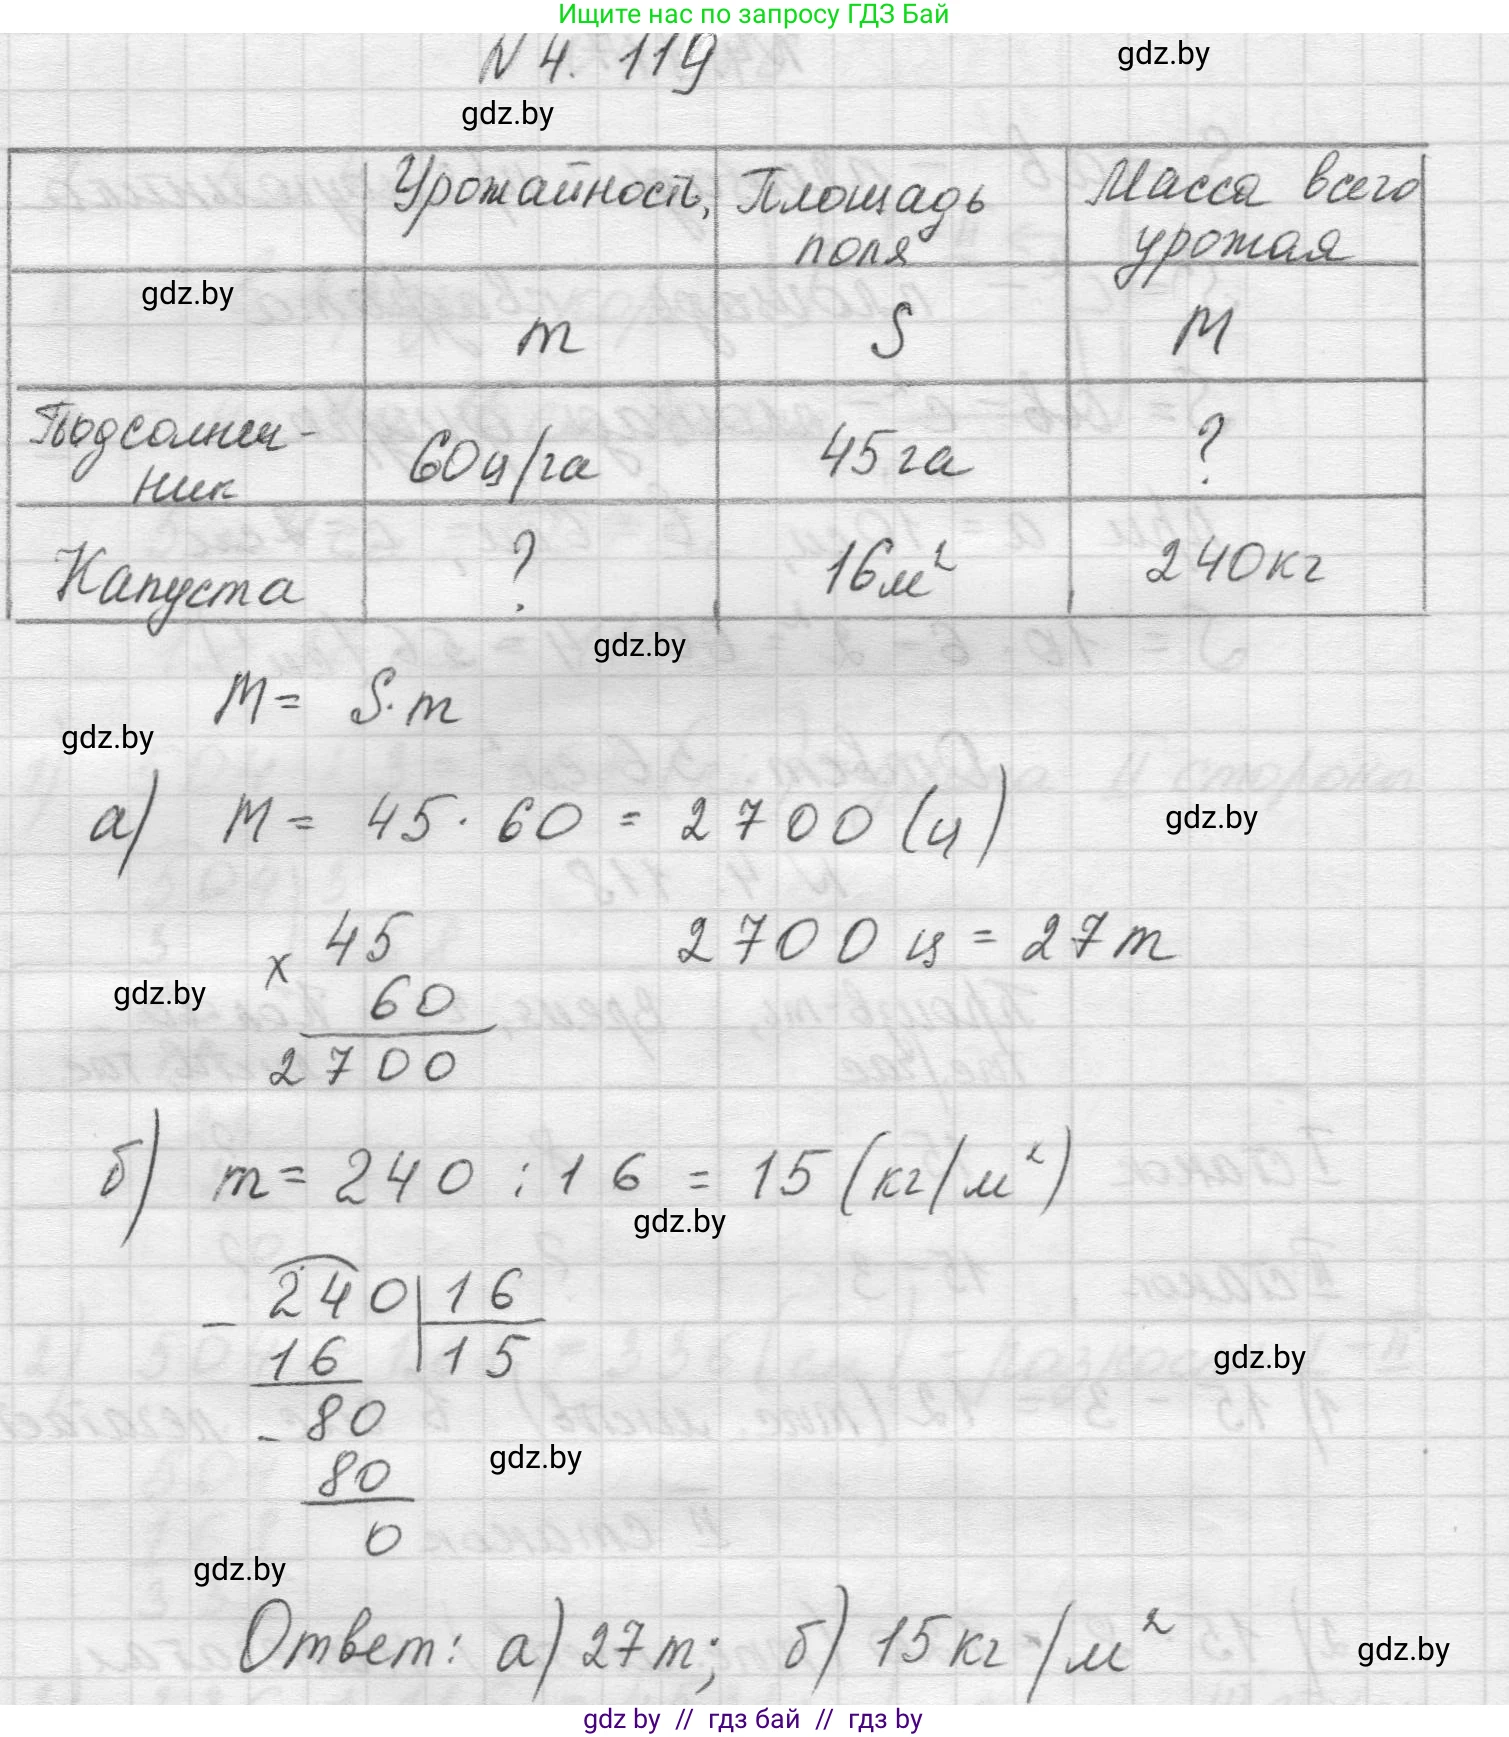 Ищите нас по запросу ГДЗ Бай
N 4. 119
gdz.by
gdz.by
Урожайность, Площадь поля Масса всего урожая
gdz.by
m S M
Подсолнеч-
ник 60ц/га 45га ?
Капуста ? 16м² 240кг
gdz.by
M = S·m
gdz.by
а) M = 45·60 = 2700 (ц)
gdz.by
x 45 2700 ц = 27т
gdz.by
60
2700
б) m = 240 : 16 = 15 (кг/м²)
gdz.by
- 240 16
16 15
gdz.by
- 80
gdz.by
80
0
gdz.by
Ответ: а) 27т; б) 15кг/м²
gdz.by
gdz by // гдз бай // гдз by